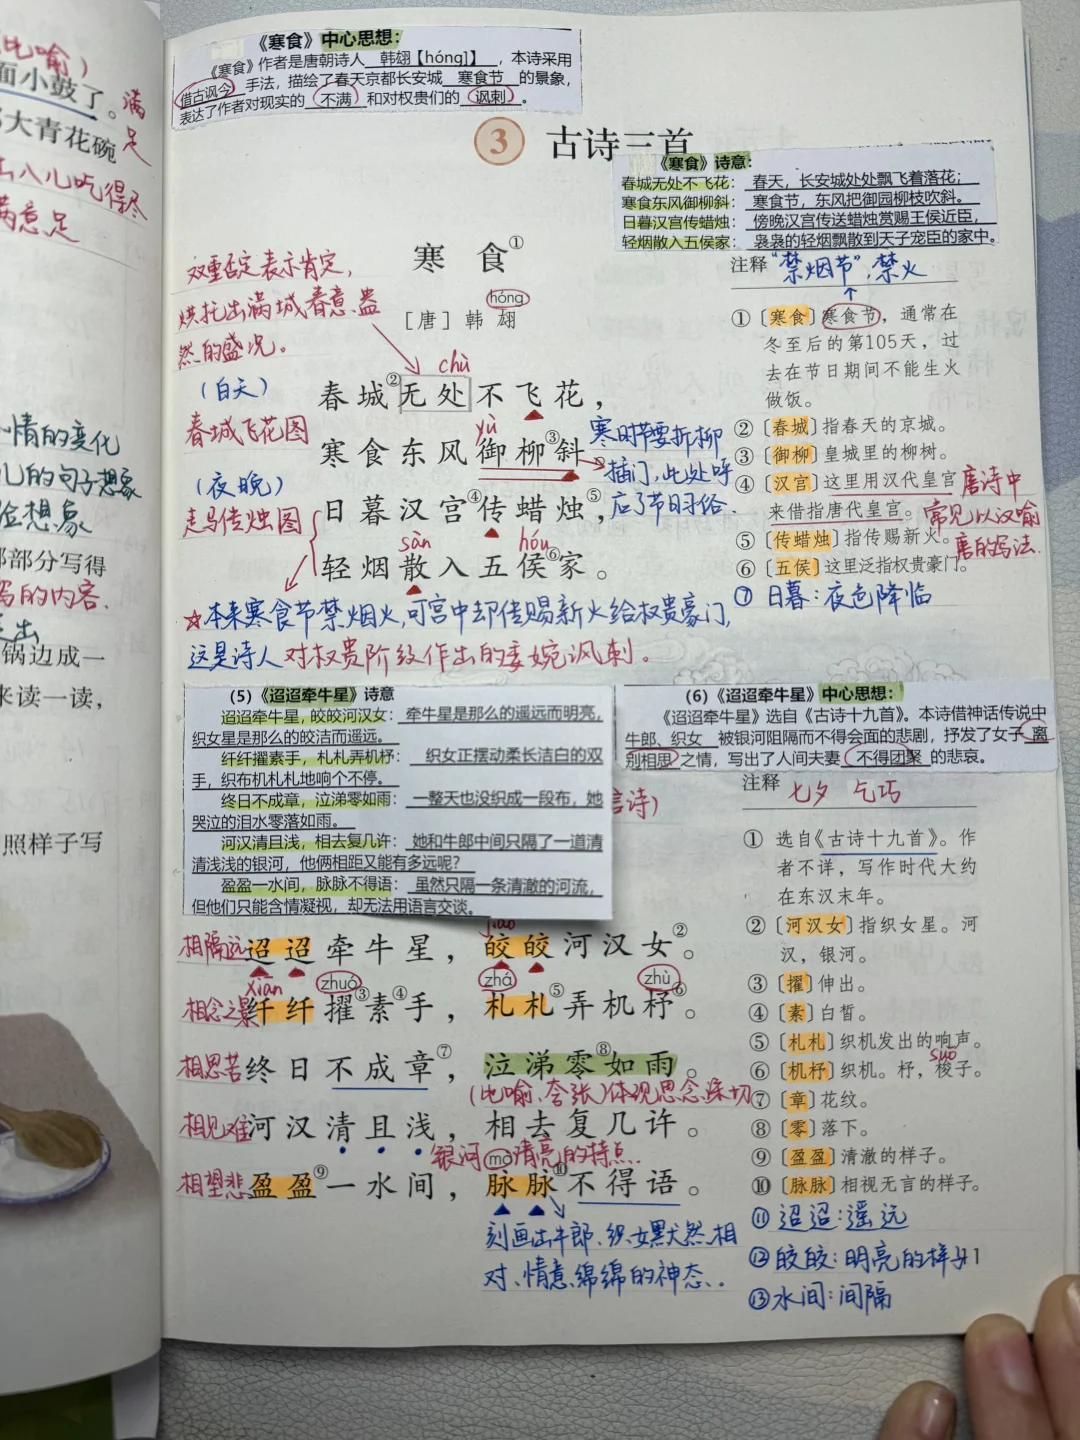 比喻）
面小鼓了。
大青花碗
满
足
出八儿吃得尽
满意足
情的变化
儿的句子想象
想象
部分写得
写的内容.
锅边成一
来读一读，
照样子写
《寒食》中心思想：
《寒食》作者是唐朝诗人 韩翃【hóng]】 ，本诗采用
借古讽今 手法，描绘了春天京都长安城 寒食节 的景象，
表达了作者对现实的 不满 和对权贵们的 讽刺 。
3 古诗三首
《寒食》诗意：
春城无处不飞花： 春天，长安城处处飘飞着落花；
寒食东风御柳斜： 寒食节，东风把御园柳枝吹斜。
日暮汉宫传蜡烛： 傍晚汉宫传送蜡烛赏赐王侯近臣，
轻烟散入五侯家： 袅袅的轻烟飘散到天子宠臣的家中。
寒食①
hóng
［唐］韩翃
双重否定表示肯定，
烘托出满城春意盎
然的盛况。
（白天）
春城飞花图
（夜晚）
走马传烛图
chù
春城②无处不飞花，
yù
寒食东风御柳③斜
日暮汉宫④传蜡烛⑤，
sàn hóu
轻烟散入五侯⑥家。
寒时节要折柳
插门，此处呼
应了节日习俗.
☆本来寒食节禁烟火，可宫中却传赐新火给权贵豪门，
这是诗人对权贵阶级作出的委婉讽刺。
注释 “禁烟节”，禁火
①〔寒食〕寒食节，通常在
冬至后的第105天，过
去在节日期间不能生火
做饭。
②〔春城〕指春天的京城。
③〔御柳〕皇城里的柳树。
④〔汉宫〕这里用汉代皇宫
来借指唐代皇宫。
唐诗中
常见以汉喻
唐的写法.
⑤〔传蜡烛〕指传赐新火。
⑥〔五侯〕这里泛指权贵豪门。
⑦ 日暮：夜色降临
（5）《迢迢牵牛星》诗意
迢迢牵牛星，皎皎河汉女： 牵牛星是那么的遥远而明亮，
织女星是那么的皎洁而遥远。
纤纤擢素手，札札弄机杼： 织女正摆动柔长洁白的双
手，织布机札札地响个不停。
终日不成章，泣涕零如雨： 一整天也没织成一段布，她
哭泣的泪水零落如雨。
河汉清且浅，相去复几许： 她和牛郎中间只隔了一道清
清浅浅的银河，他俩相距又能有多远呢？
盈盈一水间，脉脉不得语： 虽然只隔一条清澈的河流，
但他们只能含情凝视，却无法用语言交谈。
（6）《迢迢牵牛星》中心思想：
《迢迢牵牛星》选自《古诗十九首》。本诗借神话传说中
牛郎、织女 被银河阻隔而不得会面的悲剧，抒发了女子 离
别相思 之情，写出了人间夫妻 不得团聚 的悲哀。
言诗）
相隔远 迢迢牵牛星，皎皎河汉女②。
xiān zhuó zhá zhù
相念之 纤纤擢③素④手，札札⑤弄机杼⑥。
相思苦 终日不成章⑦，泣涕零⑧如雨。
（比喻、夸张）体现思念深切
相见难 河汉清且浅，相去复几许。
银河 清亮的特点.
mò
相望悲 盈盈⑨一水间，脉脉⑩不得语。
刻画出牛郎、织女默然相
对、情意绵绵的神态..
注释 七夕 乞巧
① 选自《古诗十九首》。作
者不详，写作时代大约
在东汉末年。
②〔河汉女〕指织女星。河
汉，银河。
③〔擢〕伸出。
④〔素〕白皙。
⑤〔札札〕织机发出的响声。
suō
⑥〔机杼〕织机。杼，梭子。
⑦〔章〕花纹。
⑧〔零〕落下。
⑨〔盈盈〕清澈的样子。
⑩〔脉脉〕相视无言的样子。
⑪ 迢迢：遥远
⑫ 皎皎：明亮的样子
⑬ 水间：间隔